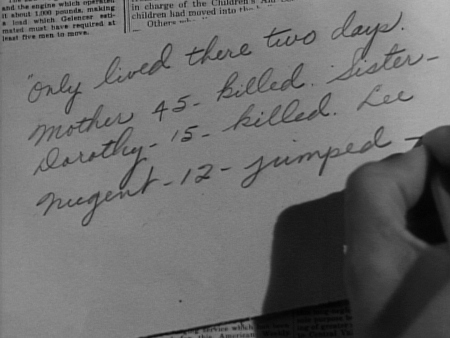 and the engine which operated
it about 1,000 pounds, making
a load which Geisncer esti-
mated must have required at
least five men to move.
in charge of the Children's Aid
children had moved into the
Others
"Only lived there two days.
Mother 45 - killed. Sister -
Dorothy - 15 - killed. Lee
Nugent - 12 - jumped -
service which
this American Weekly